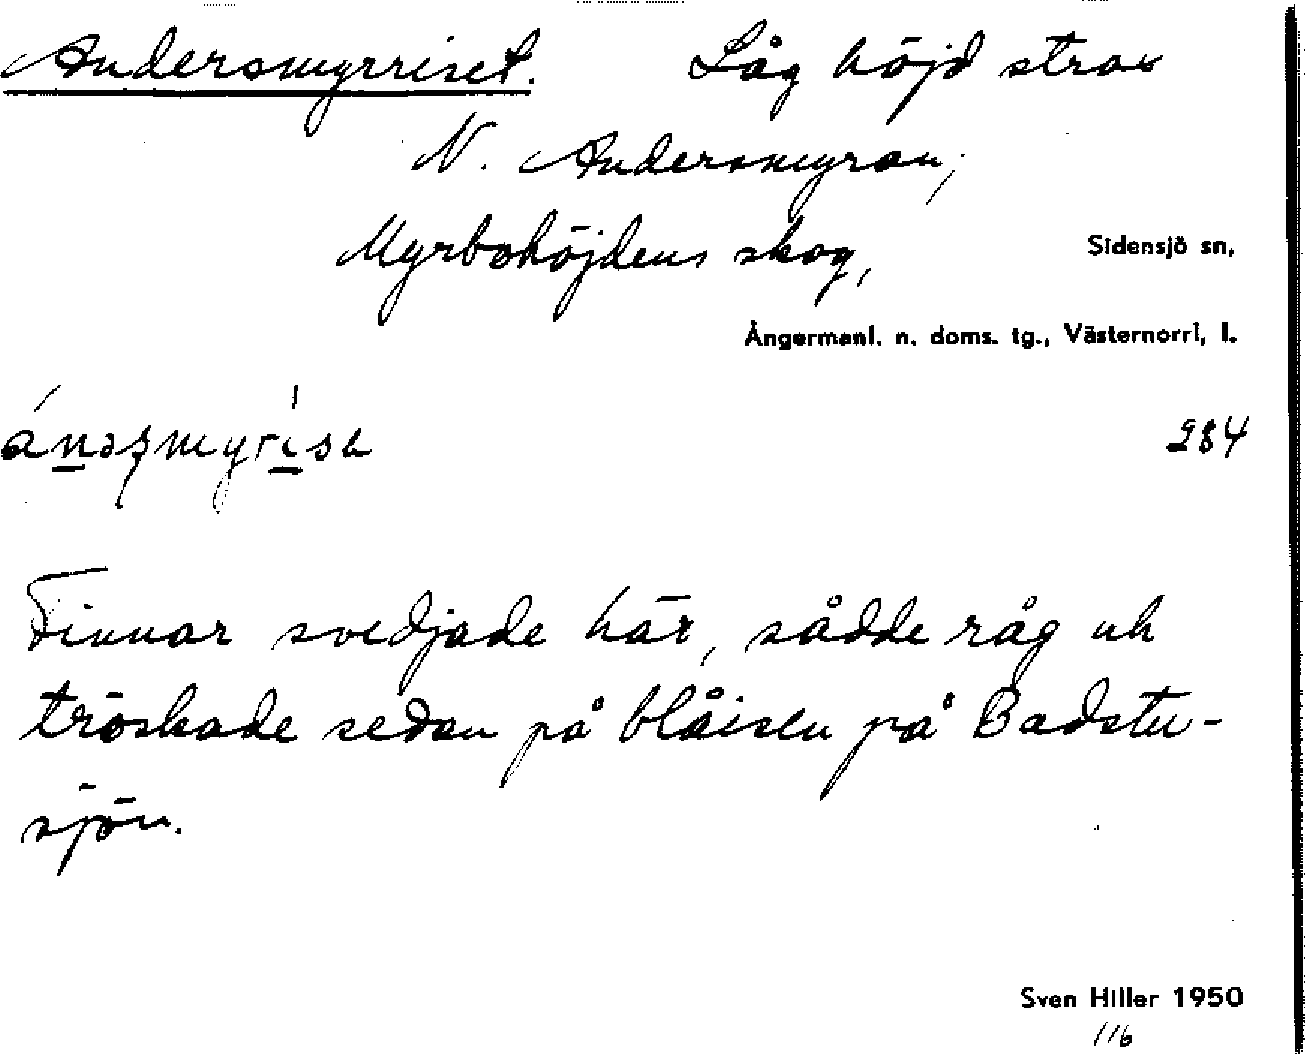 Andersmyrriset. Låg höjd strax
N. Andersmyran,
Myrbohöjdens skog,
Sidensjö sn,
Ångermanl. n. doms. tg., Västernorrl, l.
284
Finnar svedjade här, sådde råg uh
tröskade sedan på blåisen på Badstu-
sjön.
Sven Hiller 1950
116